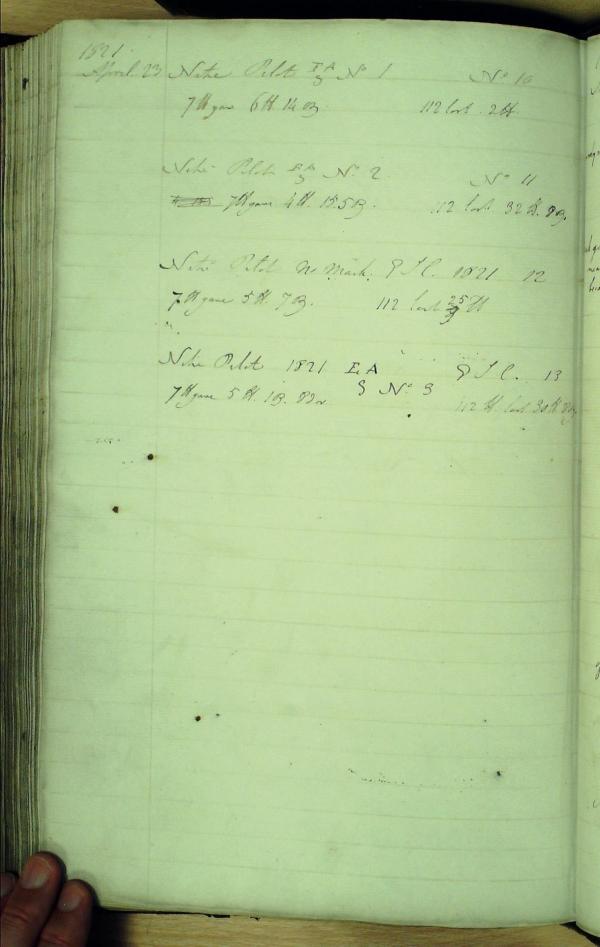 1821
April 23 Nitre Petot EA 3 No 1 No 10
7 lb gave 6 lb. 14 oz. 112 lost. 2 lb.
Nitre Petot EA 3 No. 2 No 11
7 lb gave 4 lb. 15.5 oz. 112 lost. 32 lb. 8 oz.
Nitre Petot No Mark. 1821 12
7 lb gave 5 lb. 7 oz. 112 lost 25 lb
Nitre Petot 1821 EA 3 No 3 13
7 lb gave 5 lb. 1 oz. 112 lb lost 30 lb